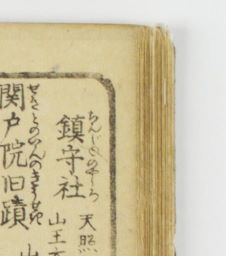 鎮守社
ちんじゆのやしろ
天照
山王
関戸院旧蹟
せきとのゐんのきうせき
山